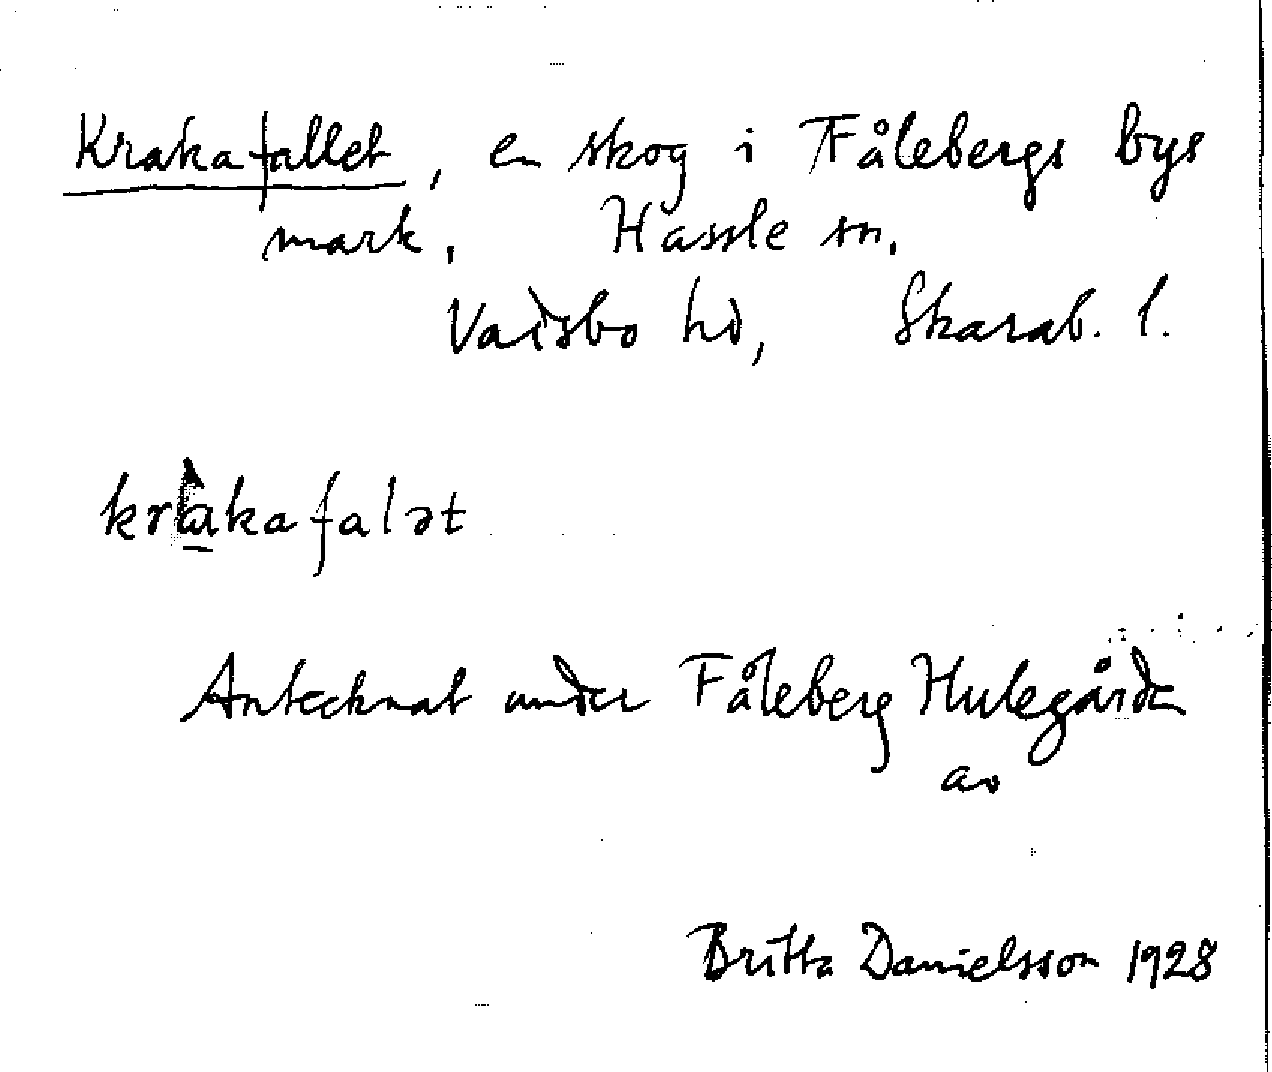 Krakafallet, en skog i Fålebergs bys
mark, Hassle sn,
Vadsbo hd, Skarab. l.
kràkafalət
Antecknat under Fåleberg Hulegården
av
Britta Danielsson 1928